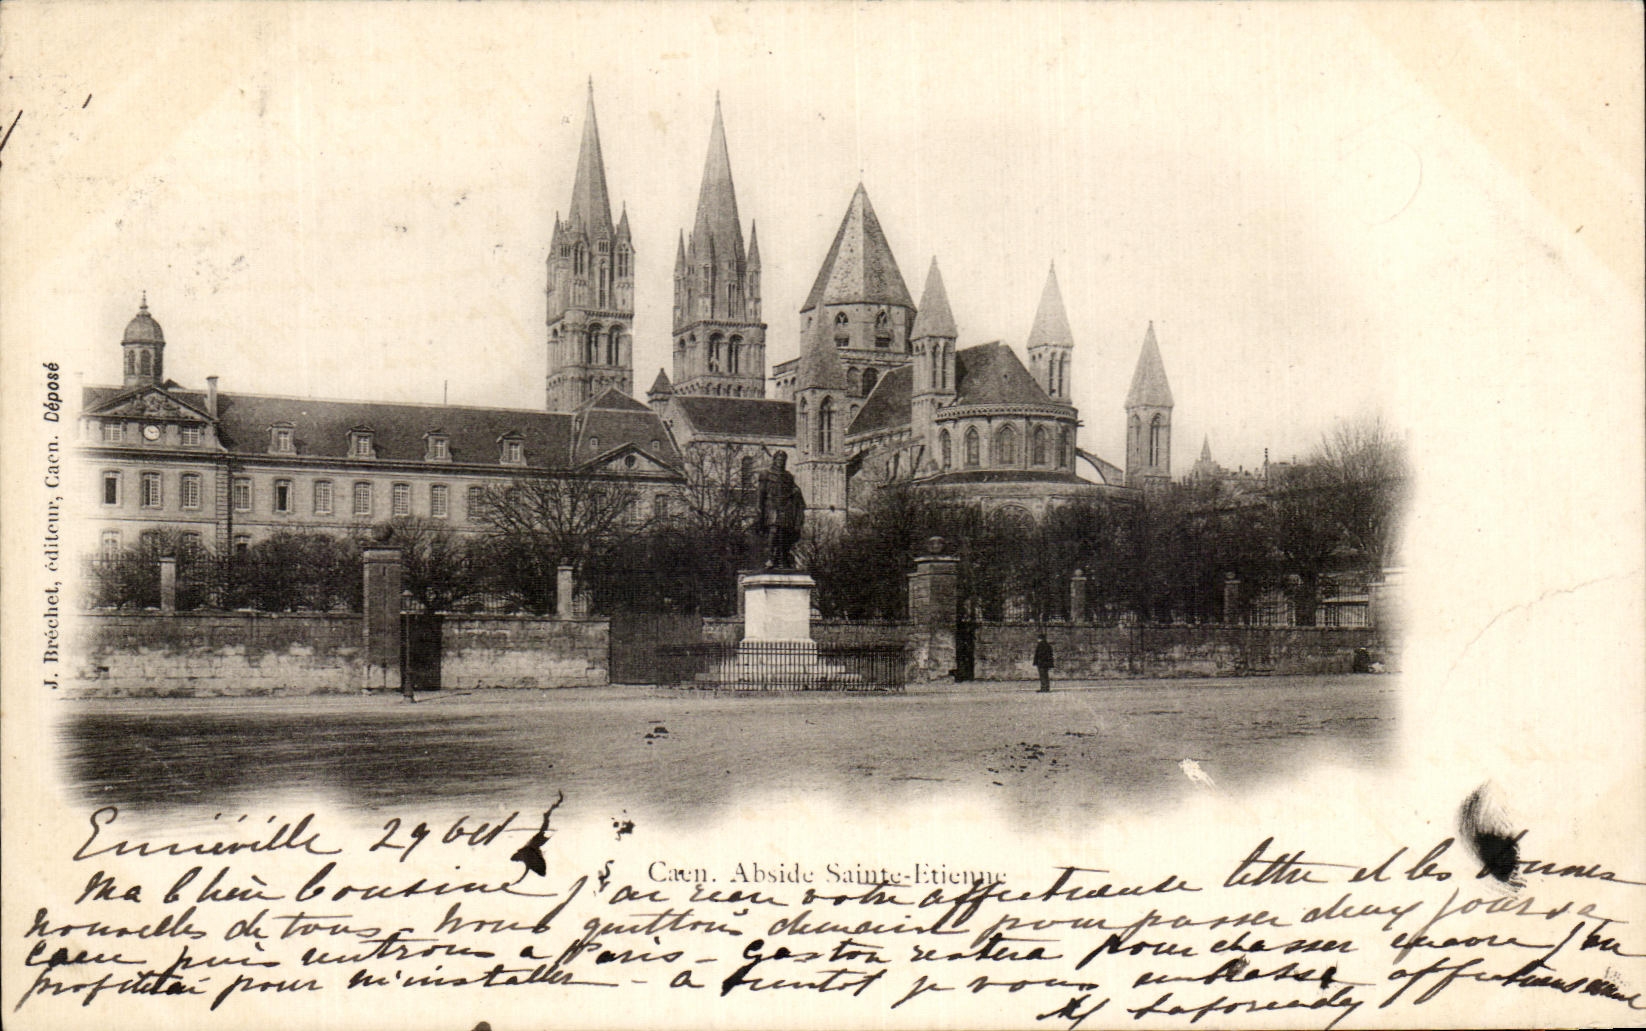 J. Bréchet, éditeur, Caen. Déposé
Caen. Abside Sainte-Etienne
29 oct
Ma Chère Cousine j'ai reçu votre affectueuse lettre et les bonnes
nouvelles de tous. Nous quittons demain pour passer deux jours a
Caen puis rentrons a Paris - Gaston restera pour chasser encore j'en
profiterai pour m'installer - a bientot je vous embrasse affectueusement